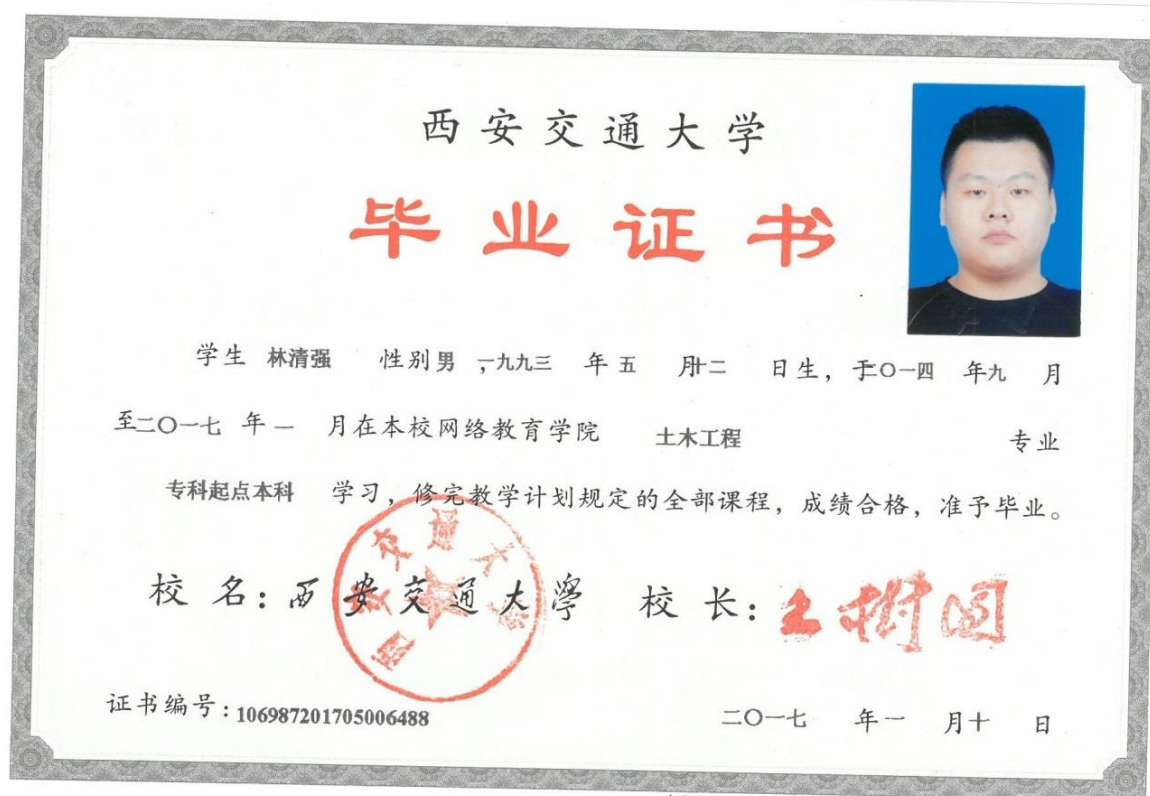 西安交通大学
毕业证书
学生 林清强 性别 男 ,一九九三 年 五 月 廿二 日生, 于二〇一四 年 九 月
至二〇一七 年 一 月在本校网络教育学院 土木工程 专业
专科起点本科 学习, 修完教学计划规定的全部课程, 成绩合格, 准予毕业。
校 名: 西安交通大学 校 长: 王树国
西安交通大学
证书编号: 106987201705006488 二〇一七 年 一 月 十 日